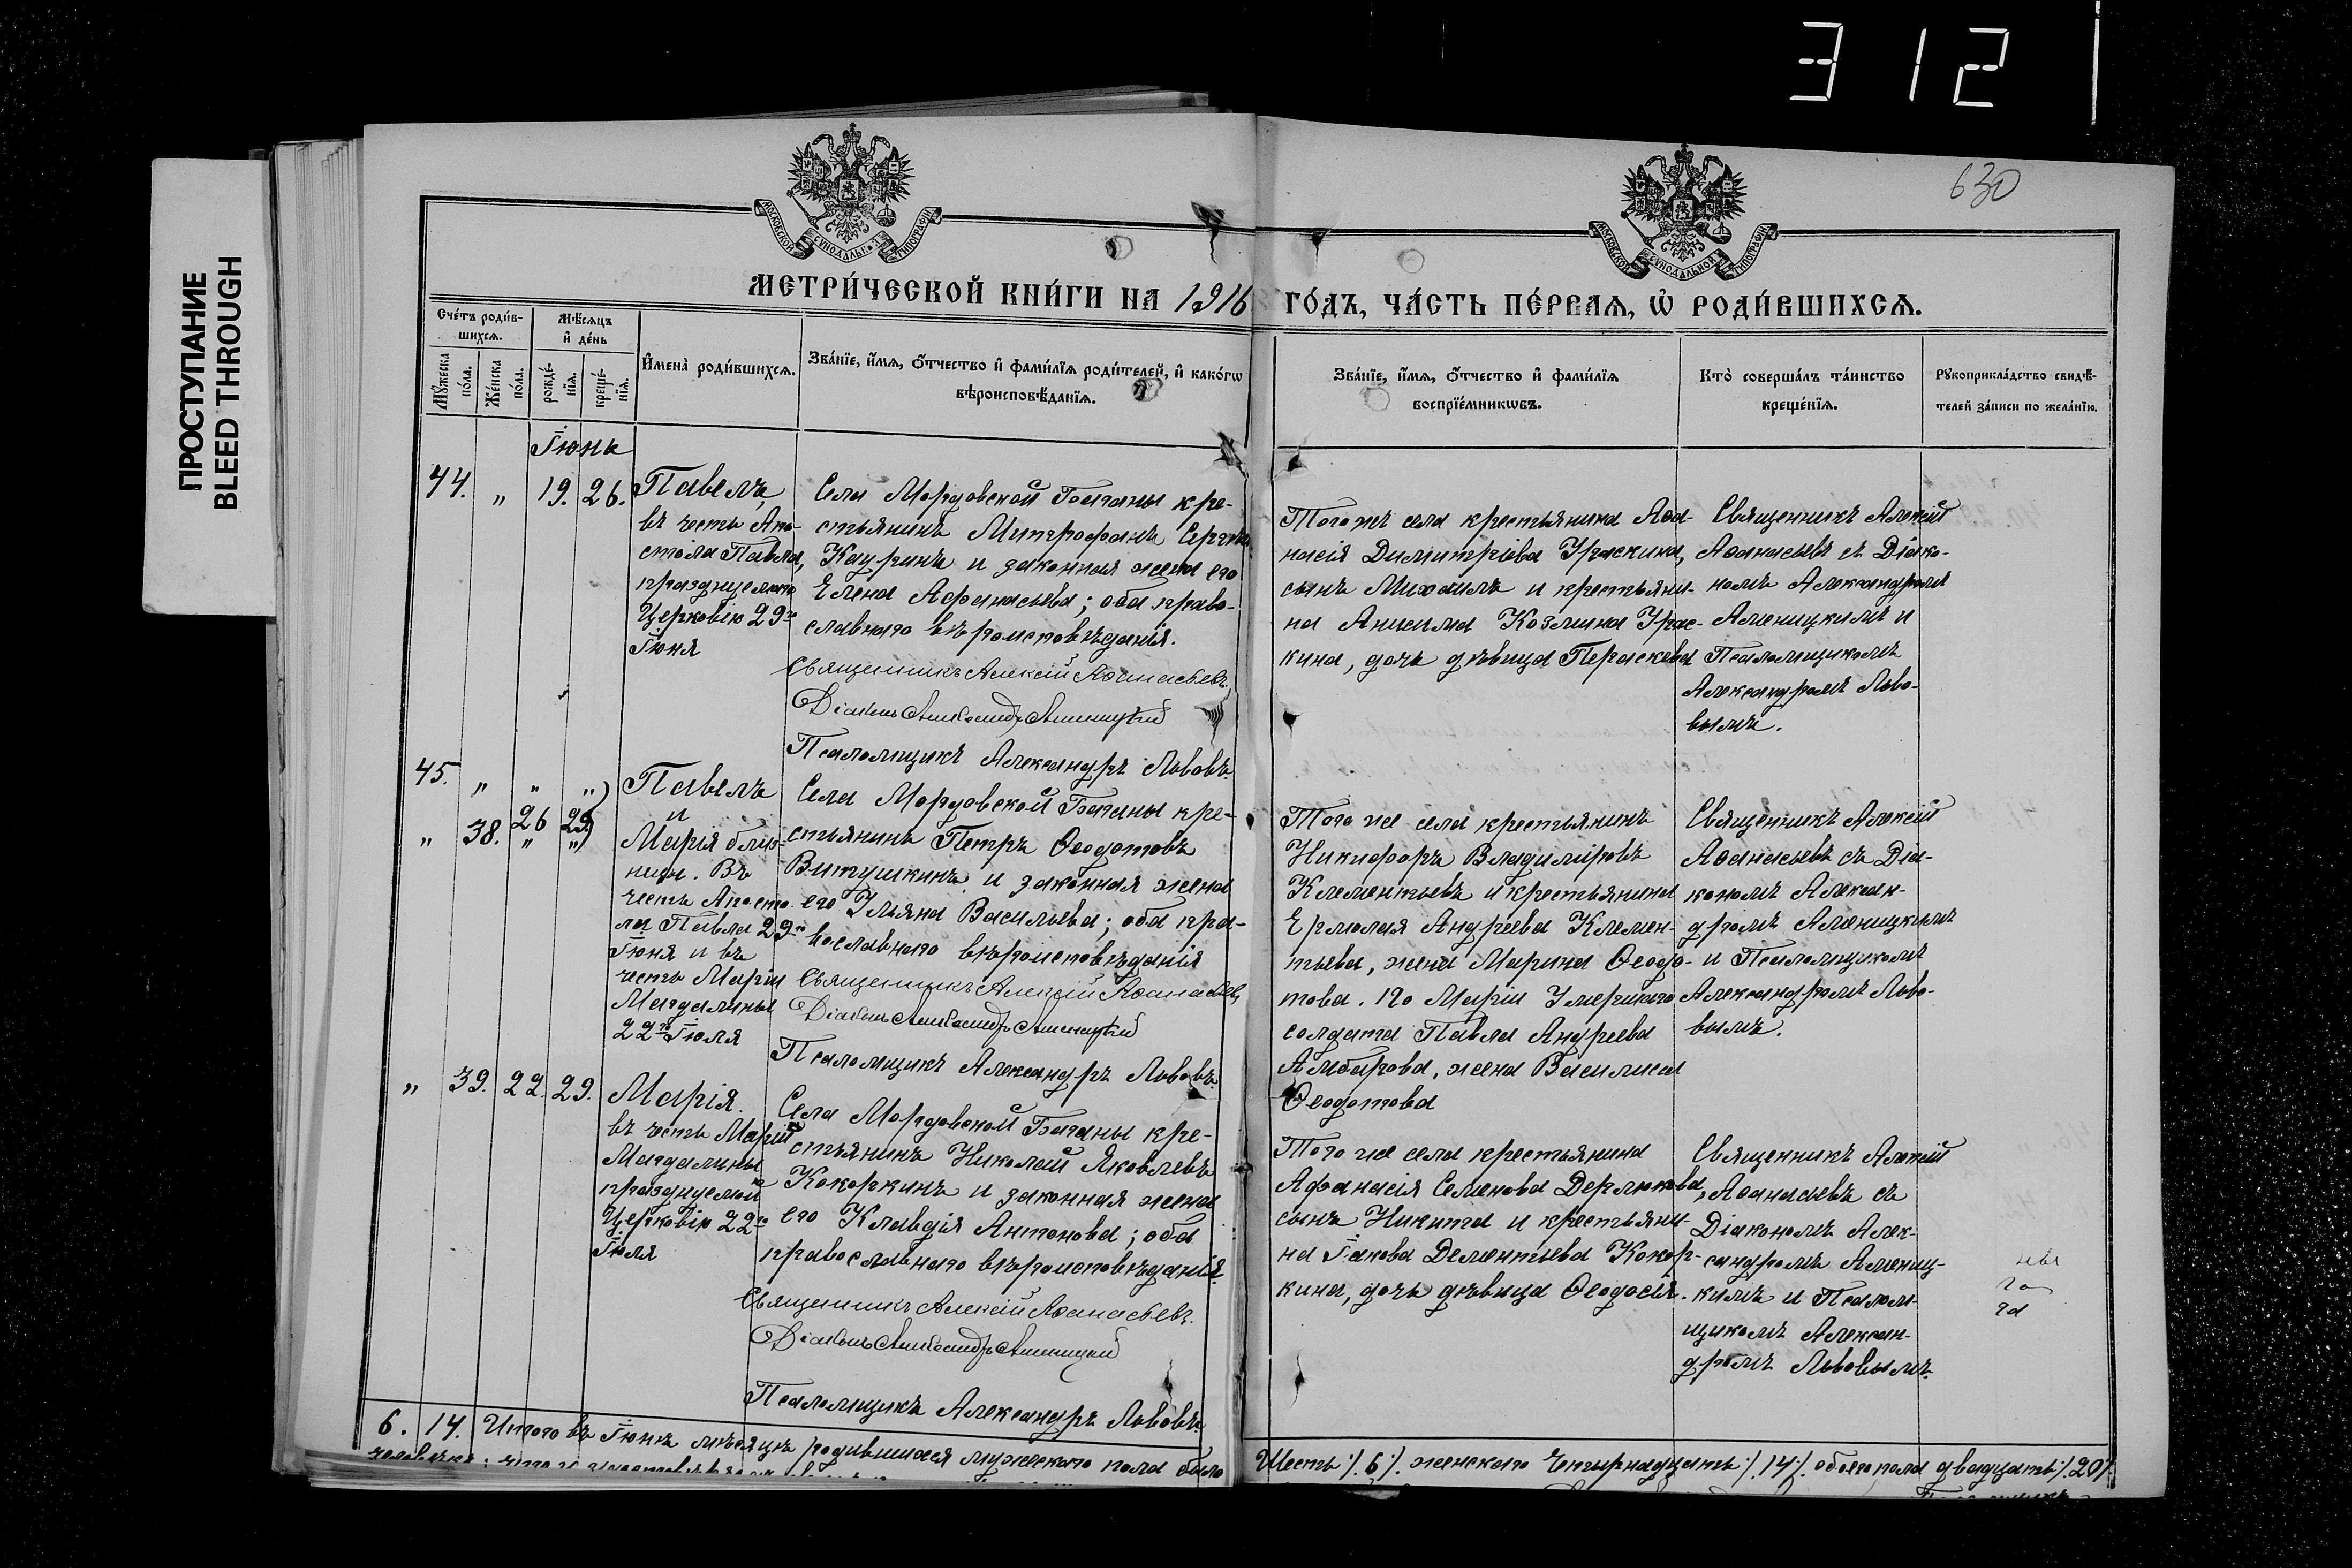 312
630
ПРОСТУПАНИЕ
BLEED THROUGH
МОСКОВСКОЙ СѴНОДАЛЬНОЙ ТИПОГРАФІИ
МОСКОВСКОЙ СѴНОДАЛЬНОЙ ТИПОГРАФІИ
МЕТРИ́ЧЕСКОЙ КНИ́ГИ НА 1916 ГО́ДЪ, ЧА́СТЬ ПЕ́РВАЯ, Ѡ РОДИ́ВШИХСЯ.
Сче́тъ роди́в-
шихся.
Мѣ́сяцъ
и де́нь
Му́жеска
по́ла.
Же́нска
по́ла.
рожде́-
нїя.
креще́-
нїя.
Имена̀ роди́вшихся.
Зва́нїе, и́мя, ѻ́тчество и фами́лїя роди́телей, и како́гѡ
вѣроисповѣ́данїя.
Зва́нїе, и́мя, ѻ́тчество и фами́лїя
воспрїе́мникѡвъ.
Кто̀ соверша́лъ та́инство
креще́нїя.
Рꙋкоприкла́дство свидѣ́-
телей за́писи по жела́нїю.
Іюнь
44. „ 19. 26.
Павелъ,
въ честь Апо-
стола Павла,
празднуемаго
Церковію 29го
Іюня
Села Мордовской Боганы кре-
стьянинъ Митрофанъ
Кауринъ и законная жена его
Елена Афанасьева; оба право-
славнаго вѣроисповѣданія.
Священникъ Алексій Аѳанасьевъ.
Діаконъ Александръ
Псаломщикъ Александръ Львовъ.
Того же села крестьянина Аѳа-
насія Димитріева Ураскина,
сынъ Михаилъ и крестьяни-
на Анисима Козмина Урас-
кина, дочь дѣвица Параскева
Священникъ Алексій
Аѳанасьевъ съ Діако-
номъ Александромъ
Аленицкимъ и
Псаломщикомъ
Александромъ Льво-
вымъ.
45. „ „ „)
„ 38. 26 29)
„ „)
Павелъ
и
Марія близ-
нецы. Въ
честь Апосто-
ла Павла 29го
Іюня и въ
честь Маріи
Магдалины
22го Іюля
Села Мордовской Боганы кре-
стьянинъ Петръ Ѳеодотовъ
Витушкинъ и законная жена
его Ульяна Васильева; оба пра-
вославнаго вѣроисповѣданія
Священникъ Алексій Аѳанасьевъ
Діаконъ Александръ
Псаломщикъ Александръ Львовъ.
Того же села крестьянинъ
Никифоръ Владиміровъ
Клементьевъ и крестьянина
Ермолая Андреева Клемен-
тьева, жена Марина Ѳеодо-
това. По Маріи Умершаго
солдата Павла Андреева
Амбарова, жена Василиса
Ѳеодотова
Священникъ Алексій
Аѳанасьевъ съ Діа-
кономъ Алексан-
дромъ Аленицкимъ
и Псаломщикомъ
Александромъ Льво-
вымъ.
„ 39. 22. 29.
Марія.
въ честь Маріи
Магдалины
празднуемой
Церковію 22го
Іюля
Села Мордовской Боганы кре-
стьянинъ Николай Яковлевъ
Кокоркинъ и законная жена
его Клавдія Антонова; оба
православнаго вѣроисповѣданія.
Священникъ Алексій Аѳанасьевъ.
Діаконъ Александръ
Псаломщикъ Александръ Львовъ.
Того же села крестьянина
Афанасія Семенова Дерлюкова,
сынъ Никита и крестьяни-
на Іакова Дементьева Кокор-
кина, дочь дѣвица Ѳеодосія.
Священникъ Алексій
Аѳанасьевъ съ
Діакономъ Алек-
сандромъ Алениц-
кимъ и Псалом-
щикомъ Алексан-
дромъ Львовымъ.
6. 14. Итого въ Іюнѣ мѣсяцѣ родившихся мужескаго пола было Шесть /.6/. женскаго Четырнадцать /.14/. обоего пола двадцать /.20/.